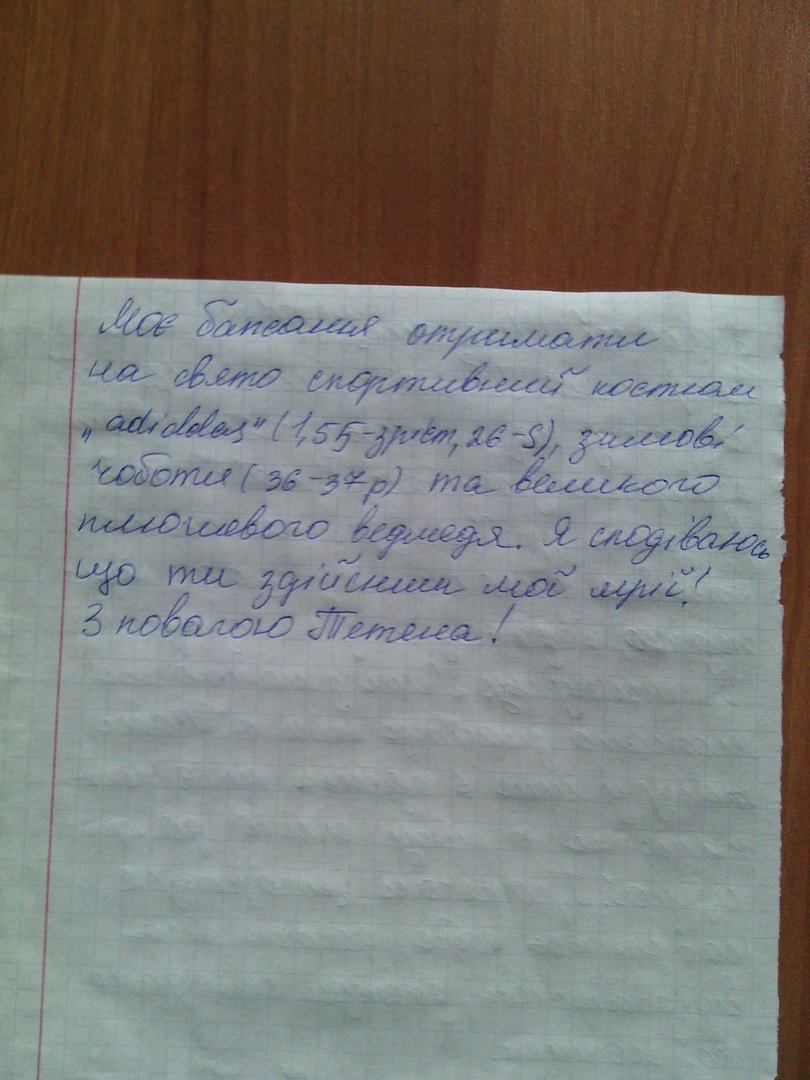 Моє бажання отримати
на свято спортивний костюм
„adiddas" (1,55-зріст, 26-S), зимові
чоботи (36-37р) та великого
плюшевого ведмедя. Я сподіваюсь
що ти здійсниш мої мрії!
З повагою Тетена!